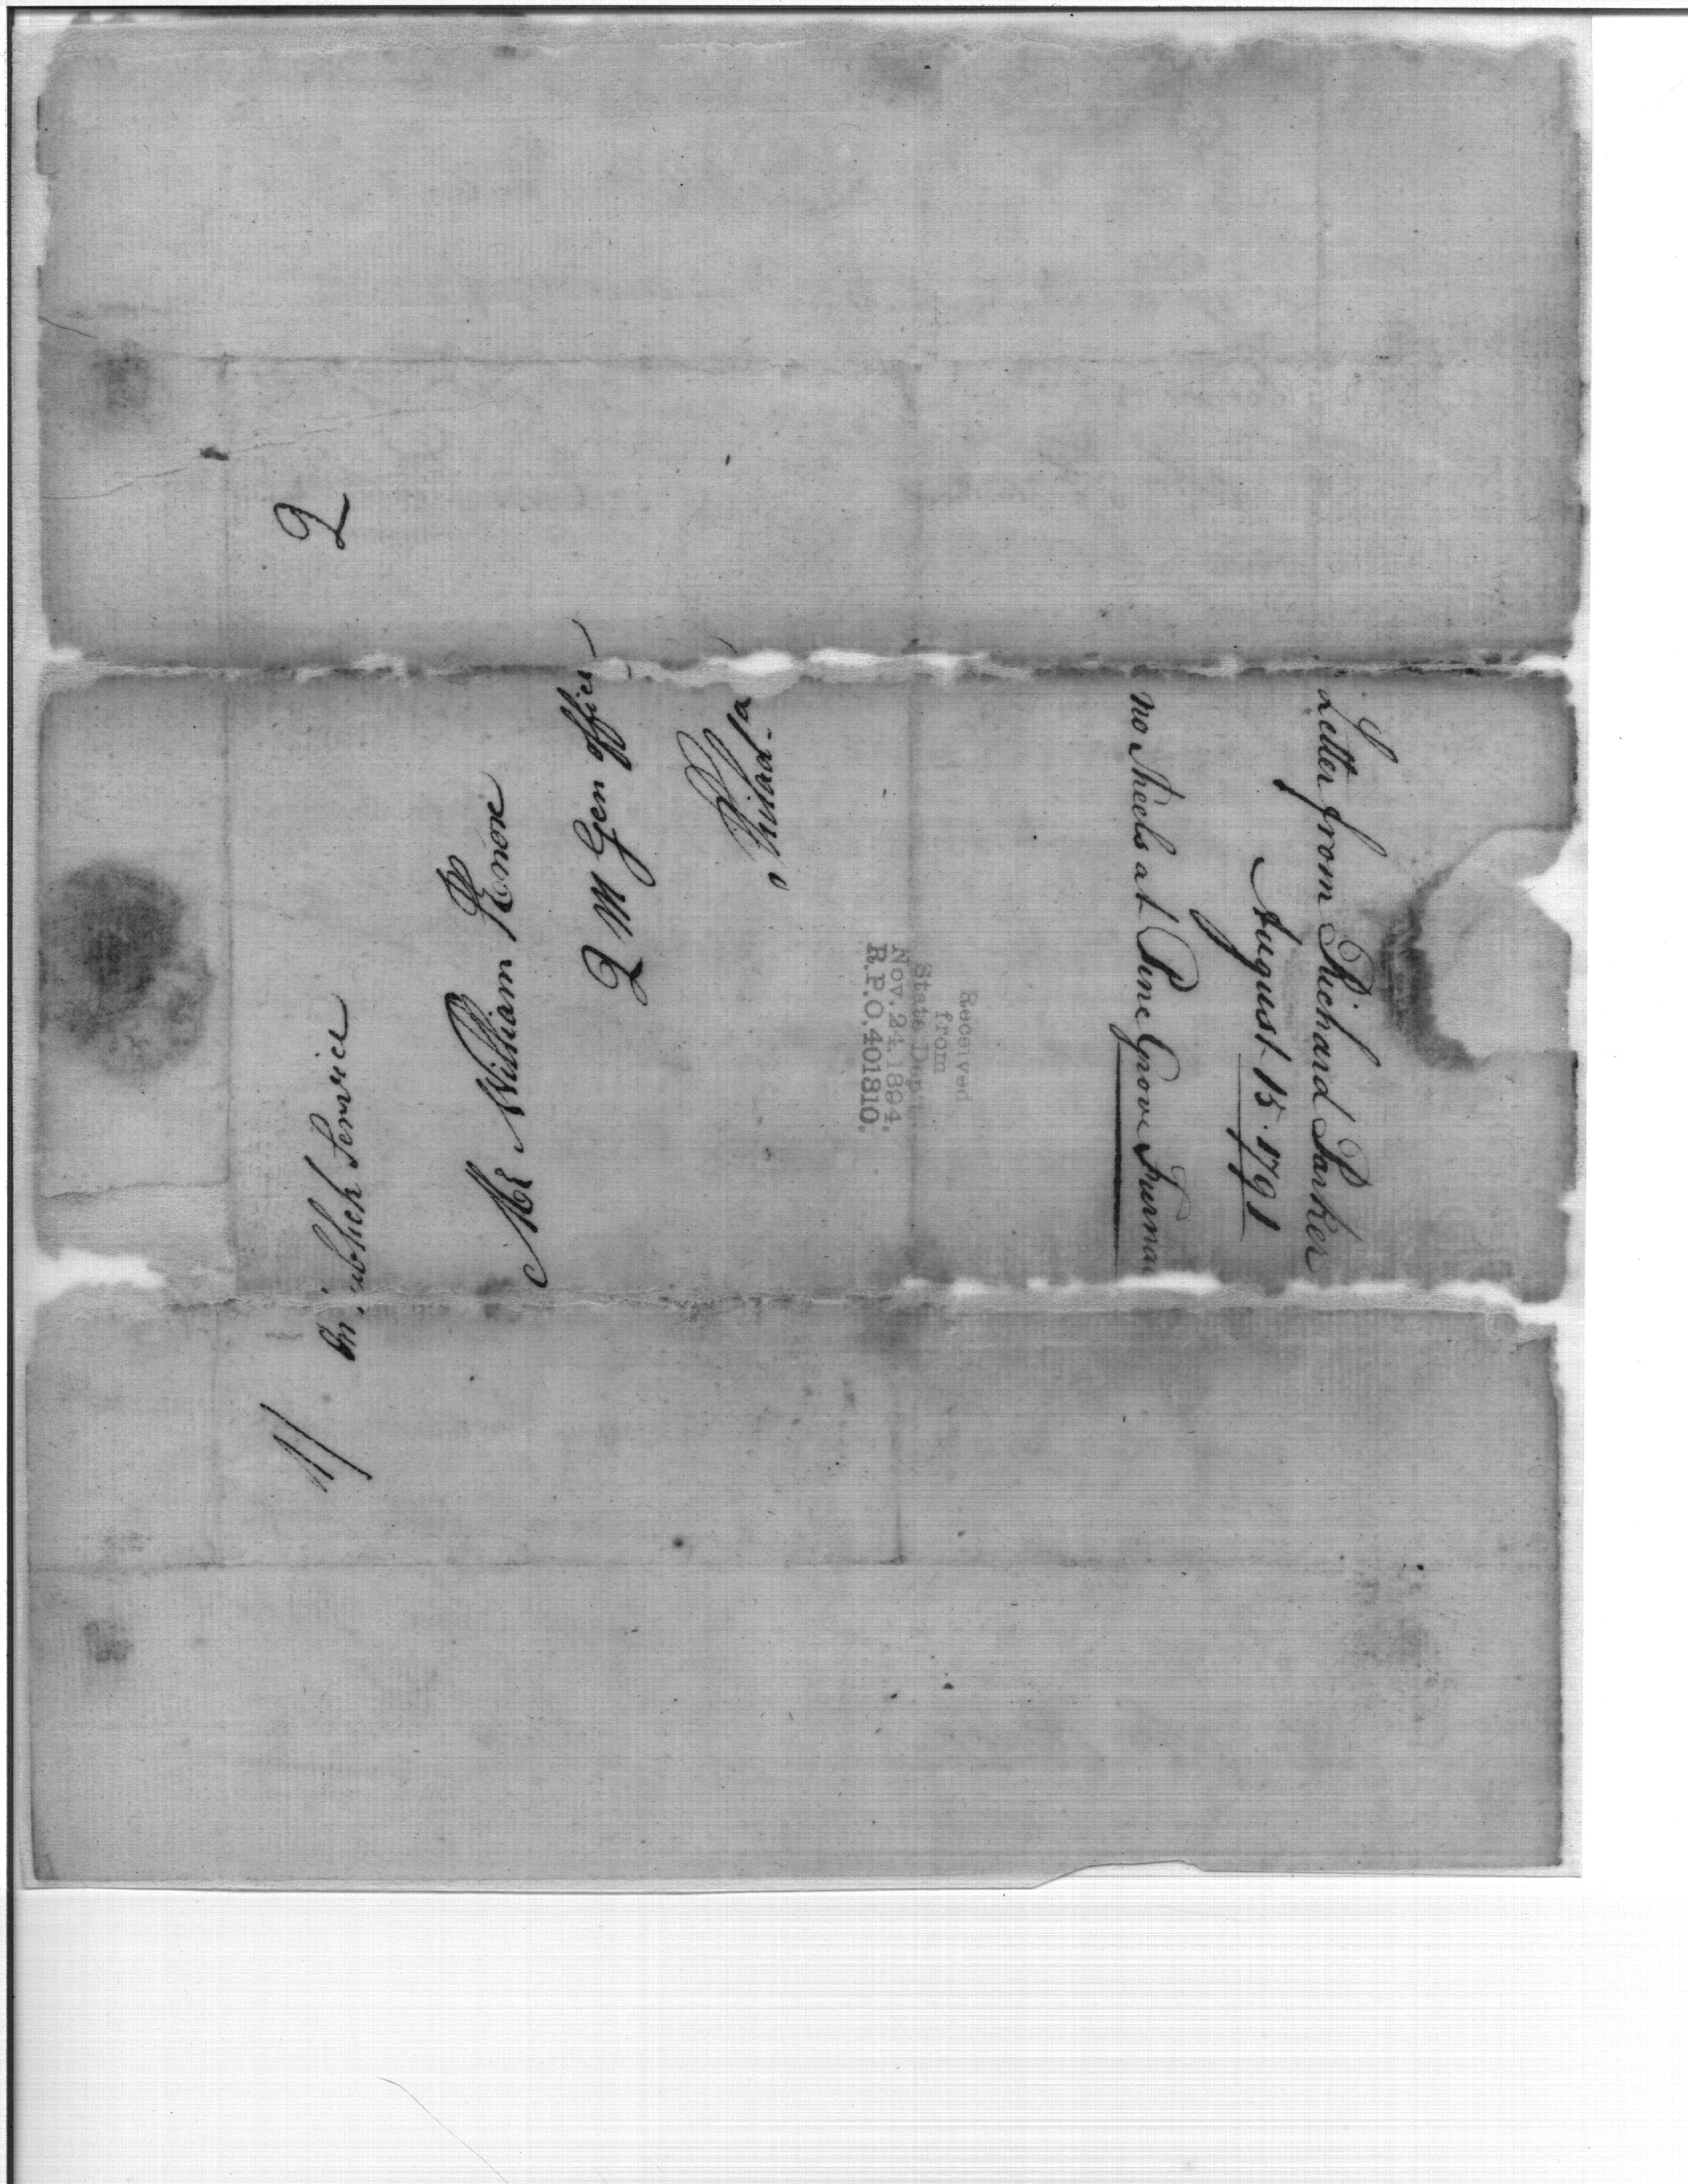 1/
2
On Publick Service
Mr William Knox
2 M Gen office
Philad-a
Received
from
State Dep't
Nov. 24, 1894.
R.P.O. 401810.
Letter from Richard Parker
August 15. 1791
no Sheels at Pine Grove Furnac